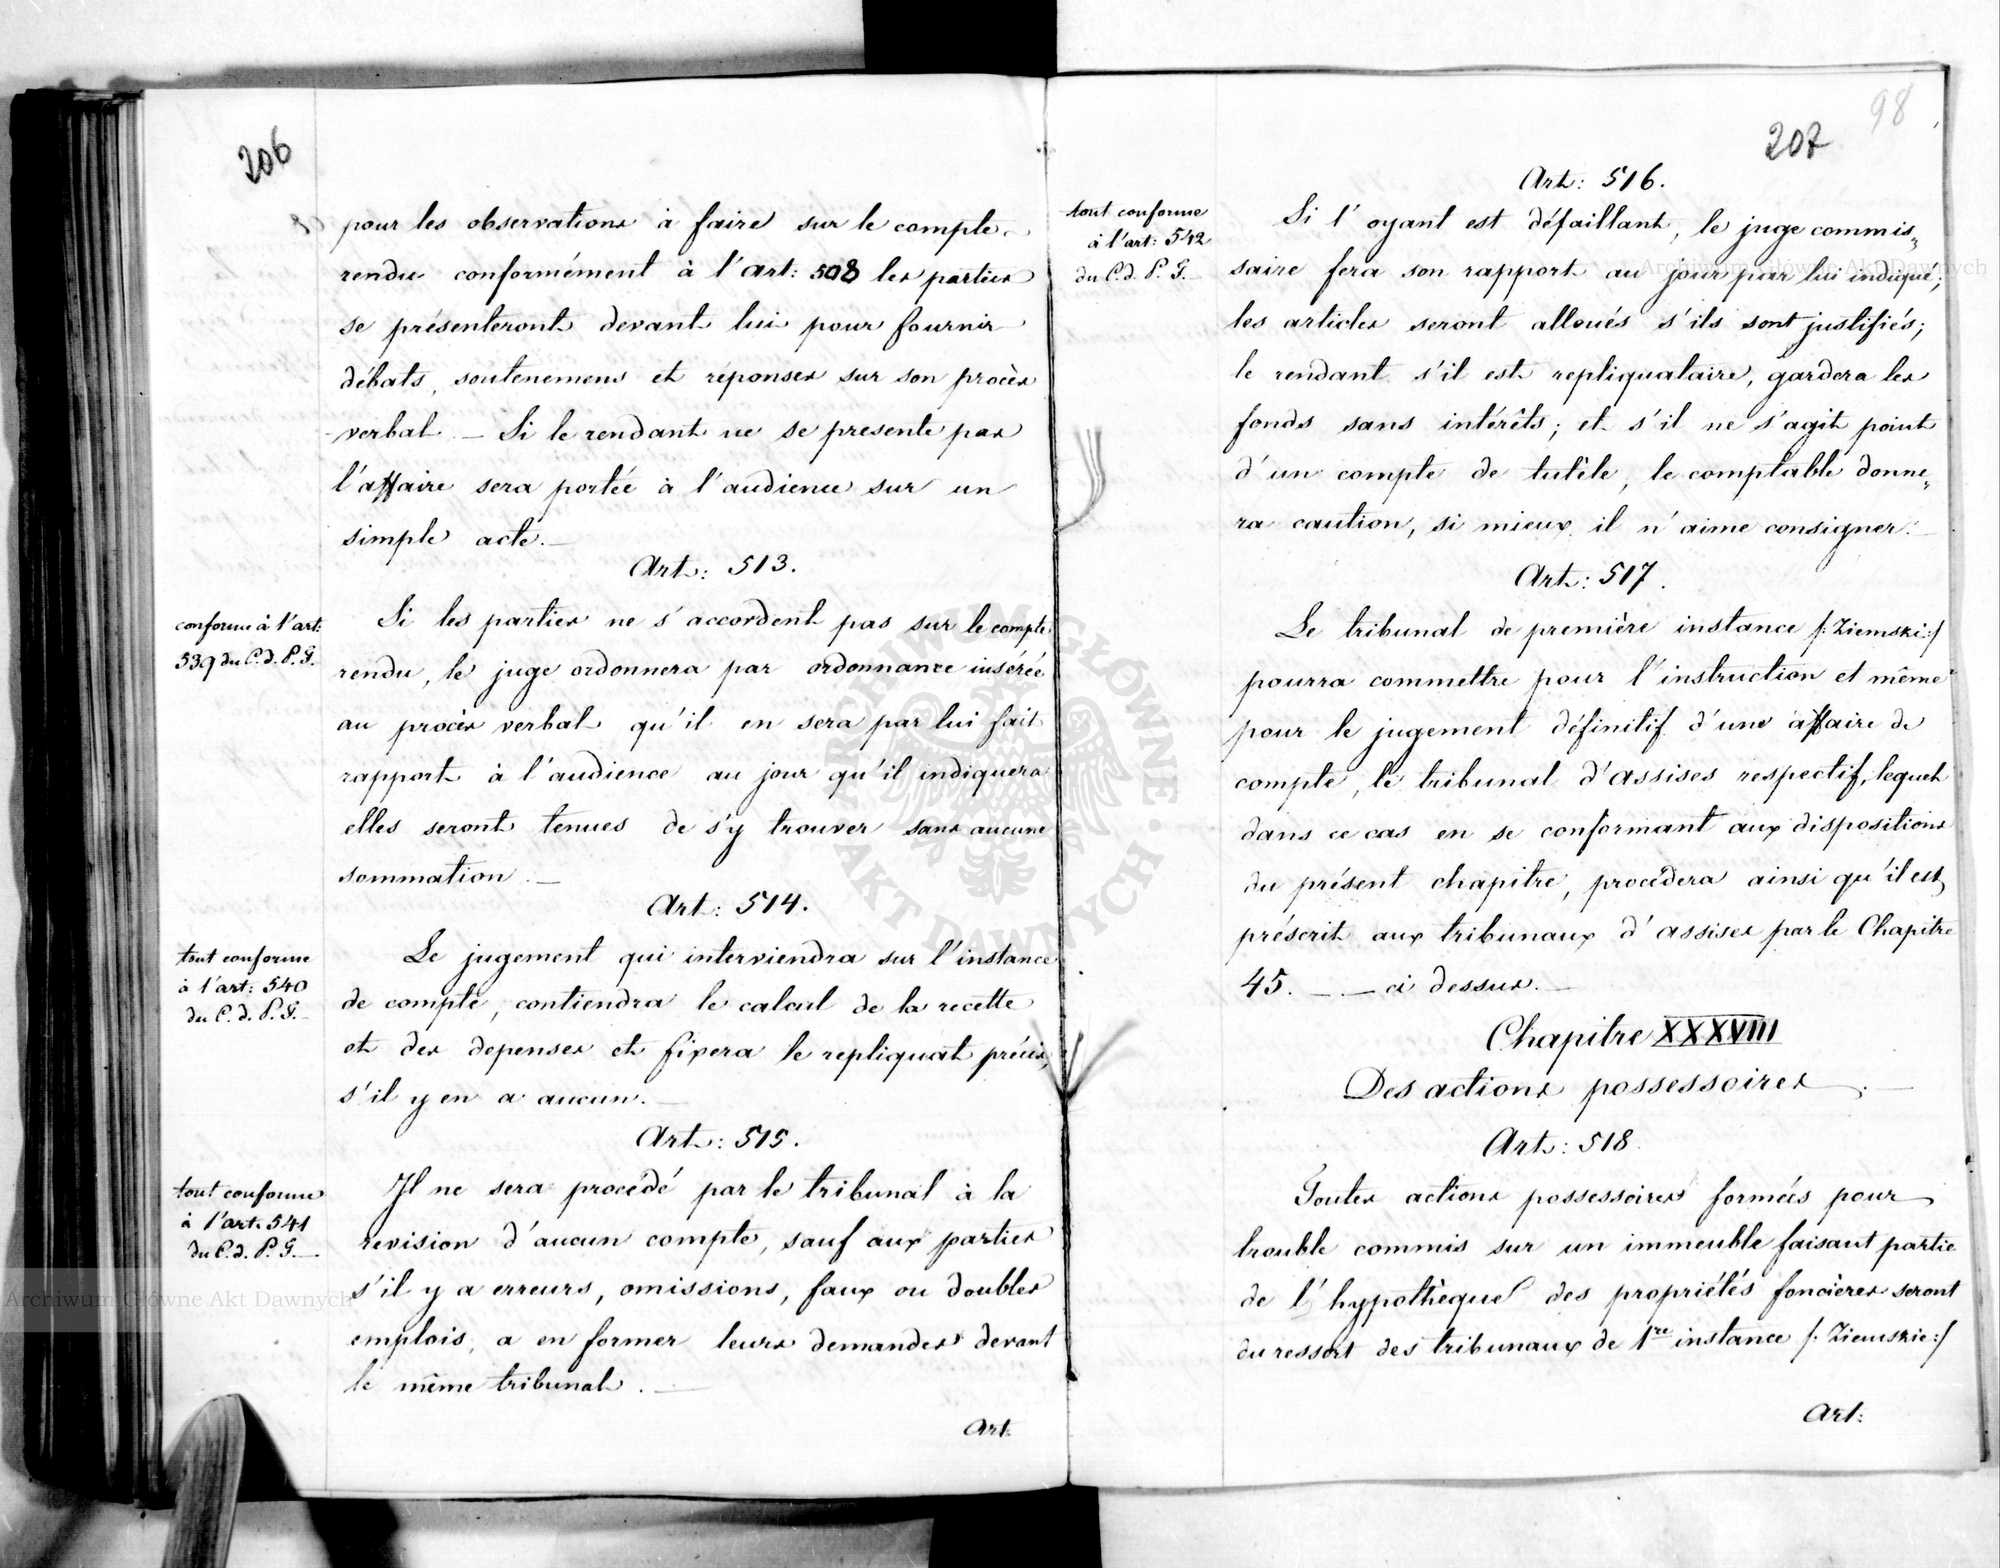 206
pour les observations à faire sur le compte
rendu conformément à l'art: 508 les parties
se présenteront devant lui pour fournir
débats, soutenemens et réponses sur son procès
verbal — Si le rendant ne se presente pas
l'affaire sera portée à l'audience sur un
simple acte. —
Art: 513.
conforme à l'art:
539 du C. d. P. F.
Si les parties ne s'accordent pas sur le compte
rendu, le juge ordonnera par ordonnance insérée
au procès verbal qu'il en sera par lui fait
rapport à l'audience au jour qu'il indiquera
elles seront tenues de s'y trouver sans aucune
sommation. —
Art: 514.
tout conforme
à l'art: 540
du C. d. P. F. —
Le jugement qui interviendra sur l'instance
de compte, contiendra le calcul de la recette
et des depenses et fixera le repliquat précis,
s'il y en a aucun. —
Art: 515.
tout conforme
à l'art. 541
du C. d. P. F. —
Il ne sera procédé par le tribunal à la
revision d'aucun compte, sauf aux parties
s'il y a erreurs, omissions, faux ou doubles
emplois, a en former leurs demandes devant
le même tribunal. —
Art:
98
207
Art: 516.
tout conforme
à l'art: 542
du C. d. P. F. —
Si l'oyant est défaillant, le juge commis„
saire fera son rapport au jour par lui indiqué;
les articles seront alloués s'ils sont justifiés;
le rendant s'il est repliquataire, gardera les
fonds sans intérêts; et s'il ne s'agit point
d'un compte de tutèle, le comptable donne„
ra caution, si mieux il n'aime consigner. —
Art: 517.
Le tribunal de première instance /: Ziemski :/
pourra commettre pour l'instruction et même
pour le jugement définitif d'une affaire de
compte, le tribunal d'assises respectif, lequel
dans ce cas en se conformant aux dispositions
du présent chapitre, procédera ainsi qu'il est
préscrit aux tribunaux d'assises par le Chapitre
45. — — ci dessus. —
Chapitre XXXVIII
Des actions possessoires. —
Art: 518.
Toutes actions possessoires formées pour
trouble commis sur un immeuble faisant partie
de l'hypothèque des propriétés foncières seront
du ressort des tribunaux de 1re instance /: Ziemskie :/
Art:
Archiwum Główne Akt Dawnych
Archiwum Główne Akt Dawnych
ARCHIWUM GŁÓWNE • AKT DAWNYCH